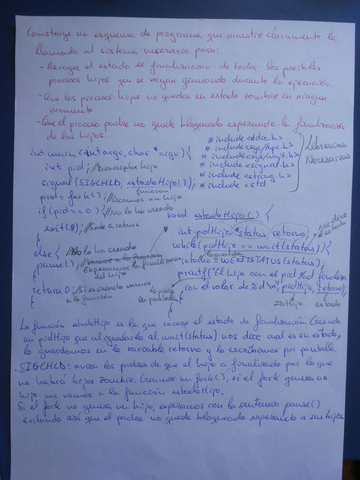 Construye un esquema de programa que muestre claramente la
llamada al sistema necesaria para:
- Recoger el estado de finalización de todos los posibles
procesos hijos que se vayan generando durante la ejecución.
- Que los procesos hijos no queden en estado zombie en ningún
momento
- Que el proceso padre no quede bloqueado esperando la finalización
de los hijos.
int main (int argc, char *argv){
int pid;
signal (SIGCHLD, estadoHijo());
pid = fork(); //Creamos un hijo
if (pid == 0) //No lo ha creado
exit(8);
else {
pause();
return 0;
#include <stdio.h>
#include <sys/types.h>
#include <sys/wait.h>
#include <signal.h>
#include <string.h>
#include <std
Librerías
Necesarias
void estadoHijo() {
int pidHijo, status, retorno;
while (pidHijo == wait(status))
retorno = WEXITSTATUS (status)
printf("El hijo con el pid %d
con el valor de %d \n", pidHijo, retorno);
La función estadoHijo es la que recoge el estado de finalización. Creando
un pidHijo que al igualarlo al wait(status) nos dice cual es su estado,
lo guardamos en la variable retorno y lo escribimos por pantalla.
SIGCHLD: avisa los padres de que el hijo a finalizado por lo que
no habrá hijos zombie. Creamos un fork(), si el fork genera un
hijo nos vamos a la función estadoHijo.
Si el fork no genera un hijo, esperamos con la sentencia pause()
evitando así que el padre no quede bloqueado esperando a sus hijos